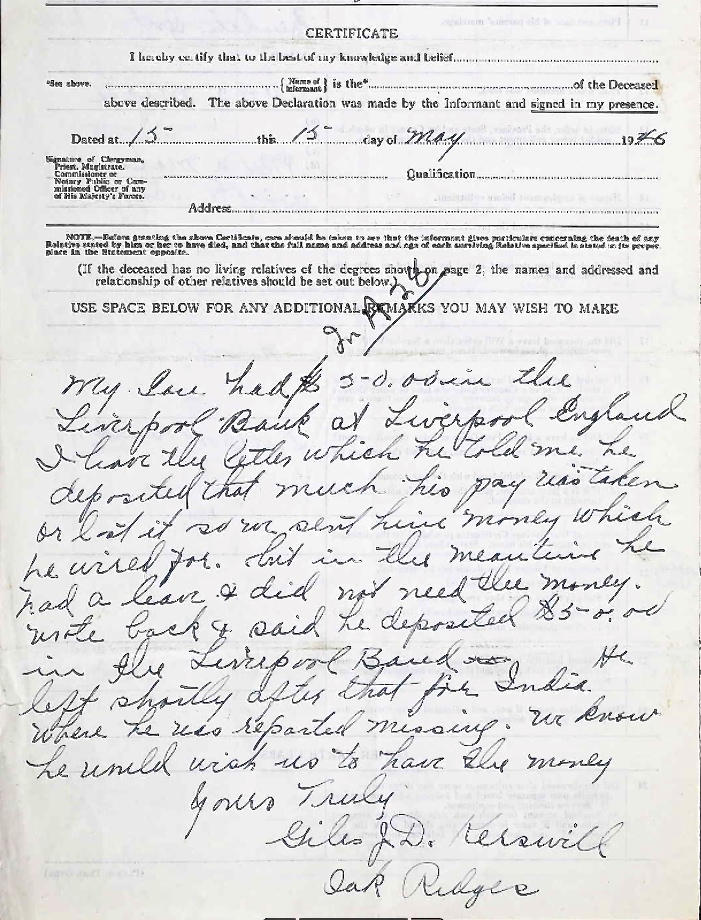 CERTIFICATE
I hereby certify that to the best of my knowledge and belief
*See above. { Name of Informant } is the* of the Deceased
above described. The above Declaration was made by the Informant and signed in my presence.
Dated at 15 this 15 day of May 1946
Signature of Clergyman,
Priest, Magistrate,
Commissioner or
Notary Public or Com-
missioned Officer of any
of His Majesty's Forces.
Qualification
Address
NOTE.—Before granting the above Certificate, care should be taken to see that the informant gives particulars concerning the death of any
Relative stated by him or her to have died, and that the full name and address and age of each surviving Relative specified is stated in its proper
place in the Statement opposite.
(If the deceased has no living relatives of the degrees shown on page 2, the names and addressed and
relationship of other relatives should be set out below.)
USE SPACE BELOW FOR ANY ADDITIONAL REMARKS YOU MAY WISH TO MAKE
My Son had $ 50.00 in the
Liverpool Bank at Liverpool England
I have the letter which he told me he
deposited that much his pay was taken
or lost it so we sent him money which
he wired for. but in the meantime he
had a leave & did not need the money.
wrote back & said he deposited $50.00
in the Liverpool Band He
left shortly after that for India
where he was reported missing. we know
he would wish us to have the money
Yours Truly
Giles J.D. Kerswill
Oak Ridges